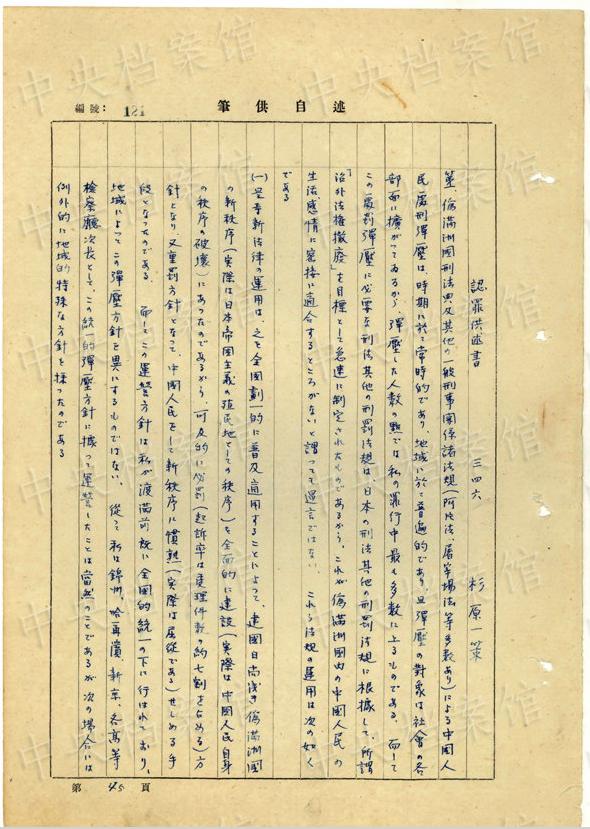 編號：
筆供自述
認罪供述書　三四六、　杉原一策
第、偽満洲國刑法典及其他の一般刑事関係諸法規(阿片法、屠宰場法等多数あり)による中國人
民處刑弾壓は、時期に於て常時的であり、地域に於て普遍的であり、且弾壓の対象は社会の各
部面に擴がってゐるから弾壓した人数の點では私の罪行中最も多数に上るものである、而して
この處罰弾壓に必要な刑法其他の刑罰法規は、日本の刑法其他の刑罰法規に根據して、所謂
「治外法権撤廃」を目標として急速に制定されたものであるから、これが偽満洲國内の中國人民の
生活感情に密接に適合するところがないと謂っても過言ではない、これら法規の運用は次の如く
である
(一)是等新法律の運用は、之を全國劃一的に普及適用することによって、建国日尚浅き偽満洲國
の新秩序(実際は日本帝国主義の殖民地としての秩序)を全面的に建設(実際は中國人民自身
の秩序の破壊)にあったのであるから、可及的に必罰(起訴率は受理件数の約七割を占める)方
針となり、又重罰方針となって、中國人民をして新秩序に慣熟(実際は屈従である)せしめる手
段となったのである、而してこの運営方針は私が渡満前既に全国的統一の下に行はれており、
地域によってこの弾壓方針を異にするものではない、從って私は錦州、哈爾濱、新京、各高等
検察廳次長として、この統一的弾壓方針に據って運営したことは當然のことであるが次の場合には
例外的に地域的特殊な方針を採ったのである
第 45 頁
中央档案馆